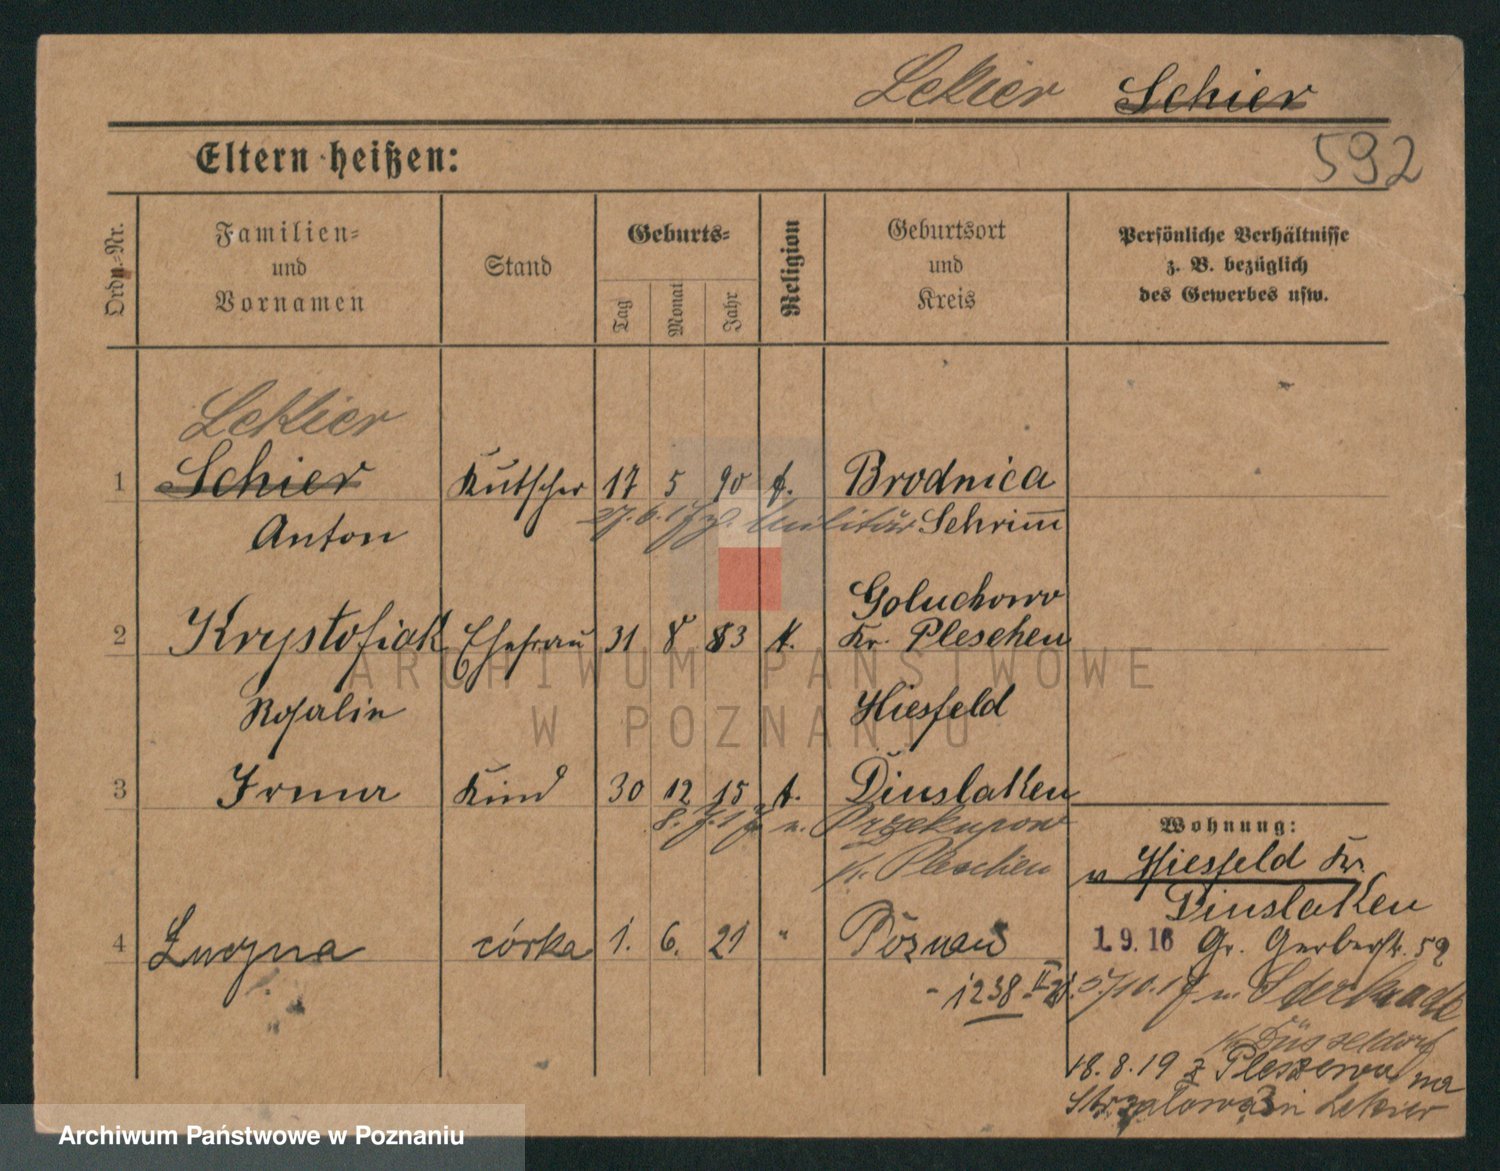 Lekier Schier
592
Eltern heißen:
Ordn.-Nr.
Familien-
und
Vornamen
Stand
Geburts-
Tag
Monat
Jahr
Religion
Geburtsort
und
Kreis
Persönliche Verhältnisse
z. B. bezüglich
des Gewerbes usw.
Lekier
1 Schier Kutscher 17 5 90 k. Brodnica
27.6.17 z. Militär
Anton Schrimm
Goluchowo
2 Krystofiak Ehefrau 31 8 83 k. Kr. Pleschen
Rosalie Hiesfeld
3 Irma Kind 30 12 15 k. Dinslaken
8.7.17 n. Przekupow
Kr. Pleschen
Wohnung:
v Hiesfeld Kr.
Dinslaken
4 Luczna córka 1. 6. 21 " Poznań
- 1238 II 21.
1.9.16 Gr. Gerberstr. 52
5/10.17 n.
Kr. Düsseldorf
18.8.19 z Pleszewa na
Strzałowa 3 Lekier
ARCHIWUM PAŃSTWOWE
W POZNANIU
Archiwum Państwowe w Poznaniu